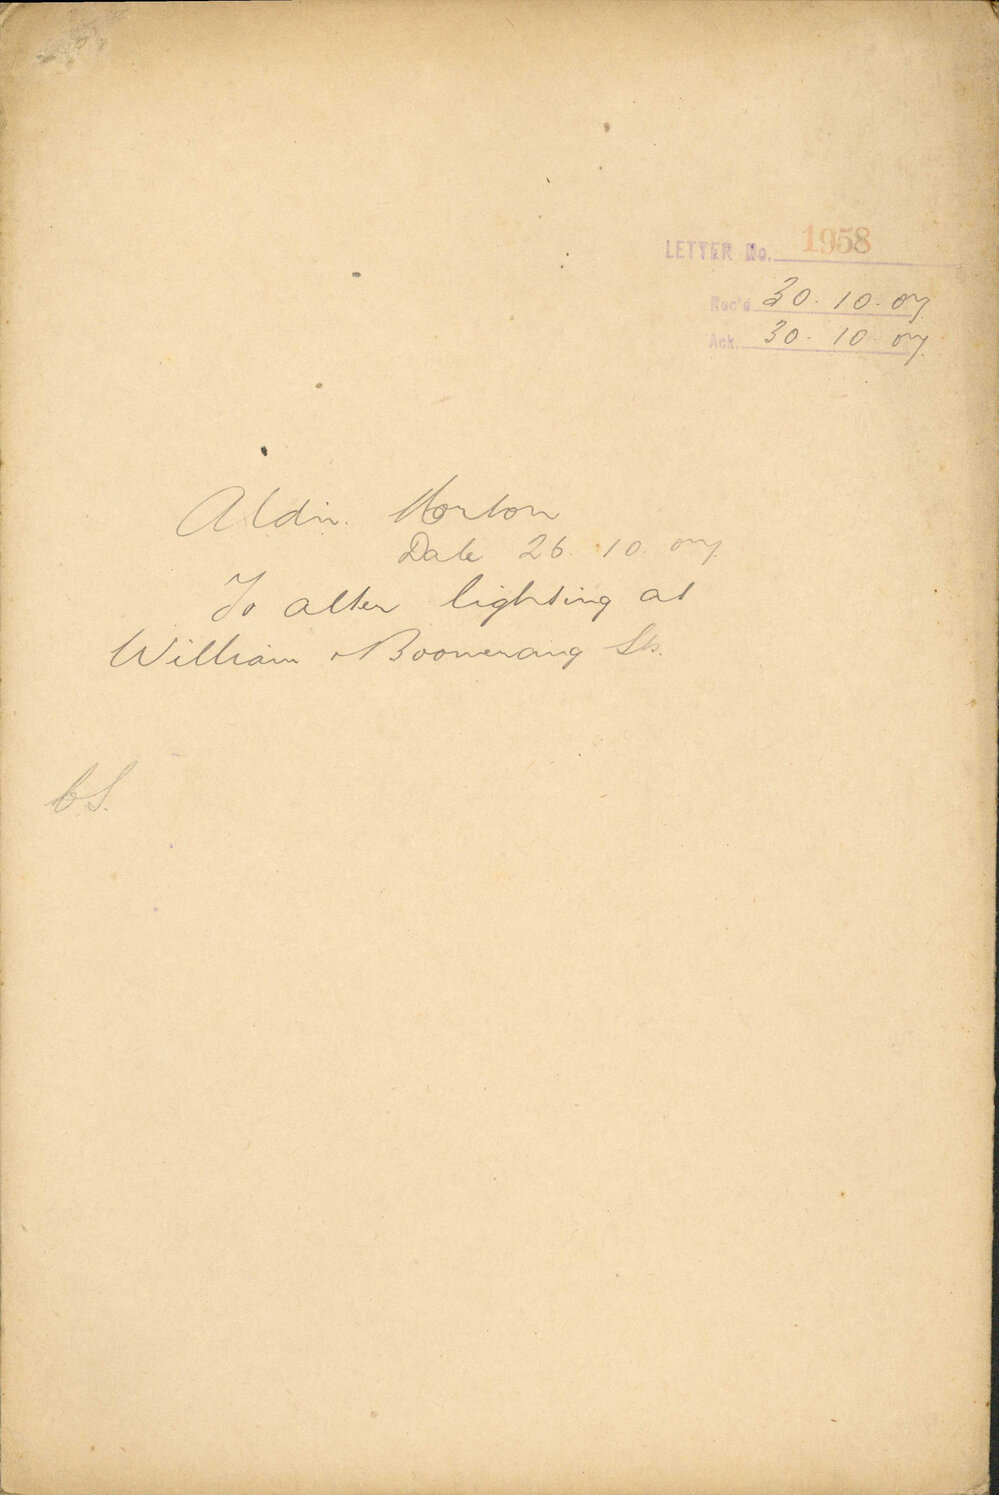 LETTER No. 1958
Rec'd 30. 10. 07
Ack. 30. 10. 07
Aldn. Horton
Date 26. 10. 07
To alter lighting at
William & Boomerang Sts.
C.S.